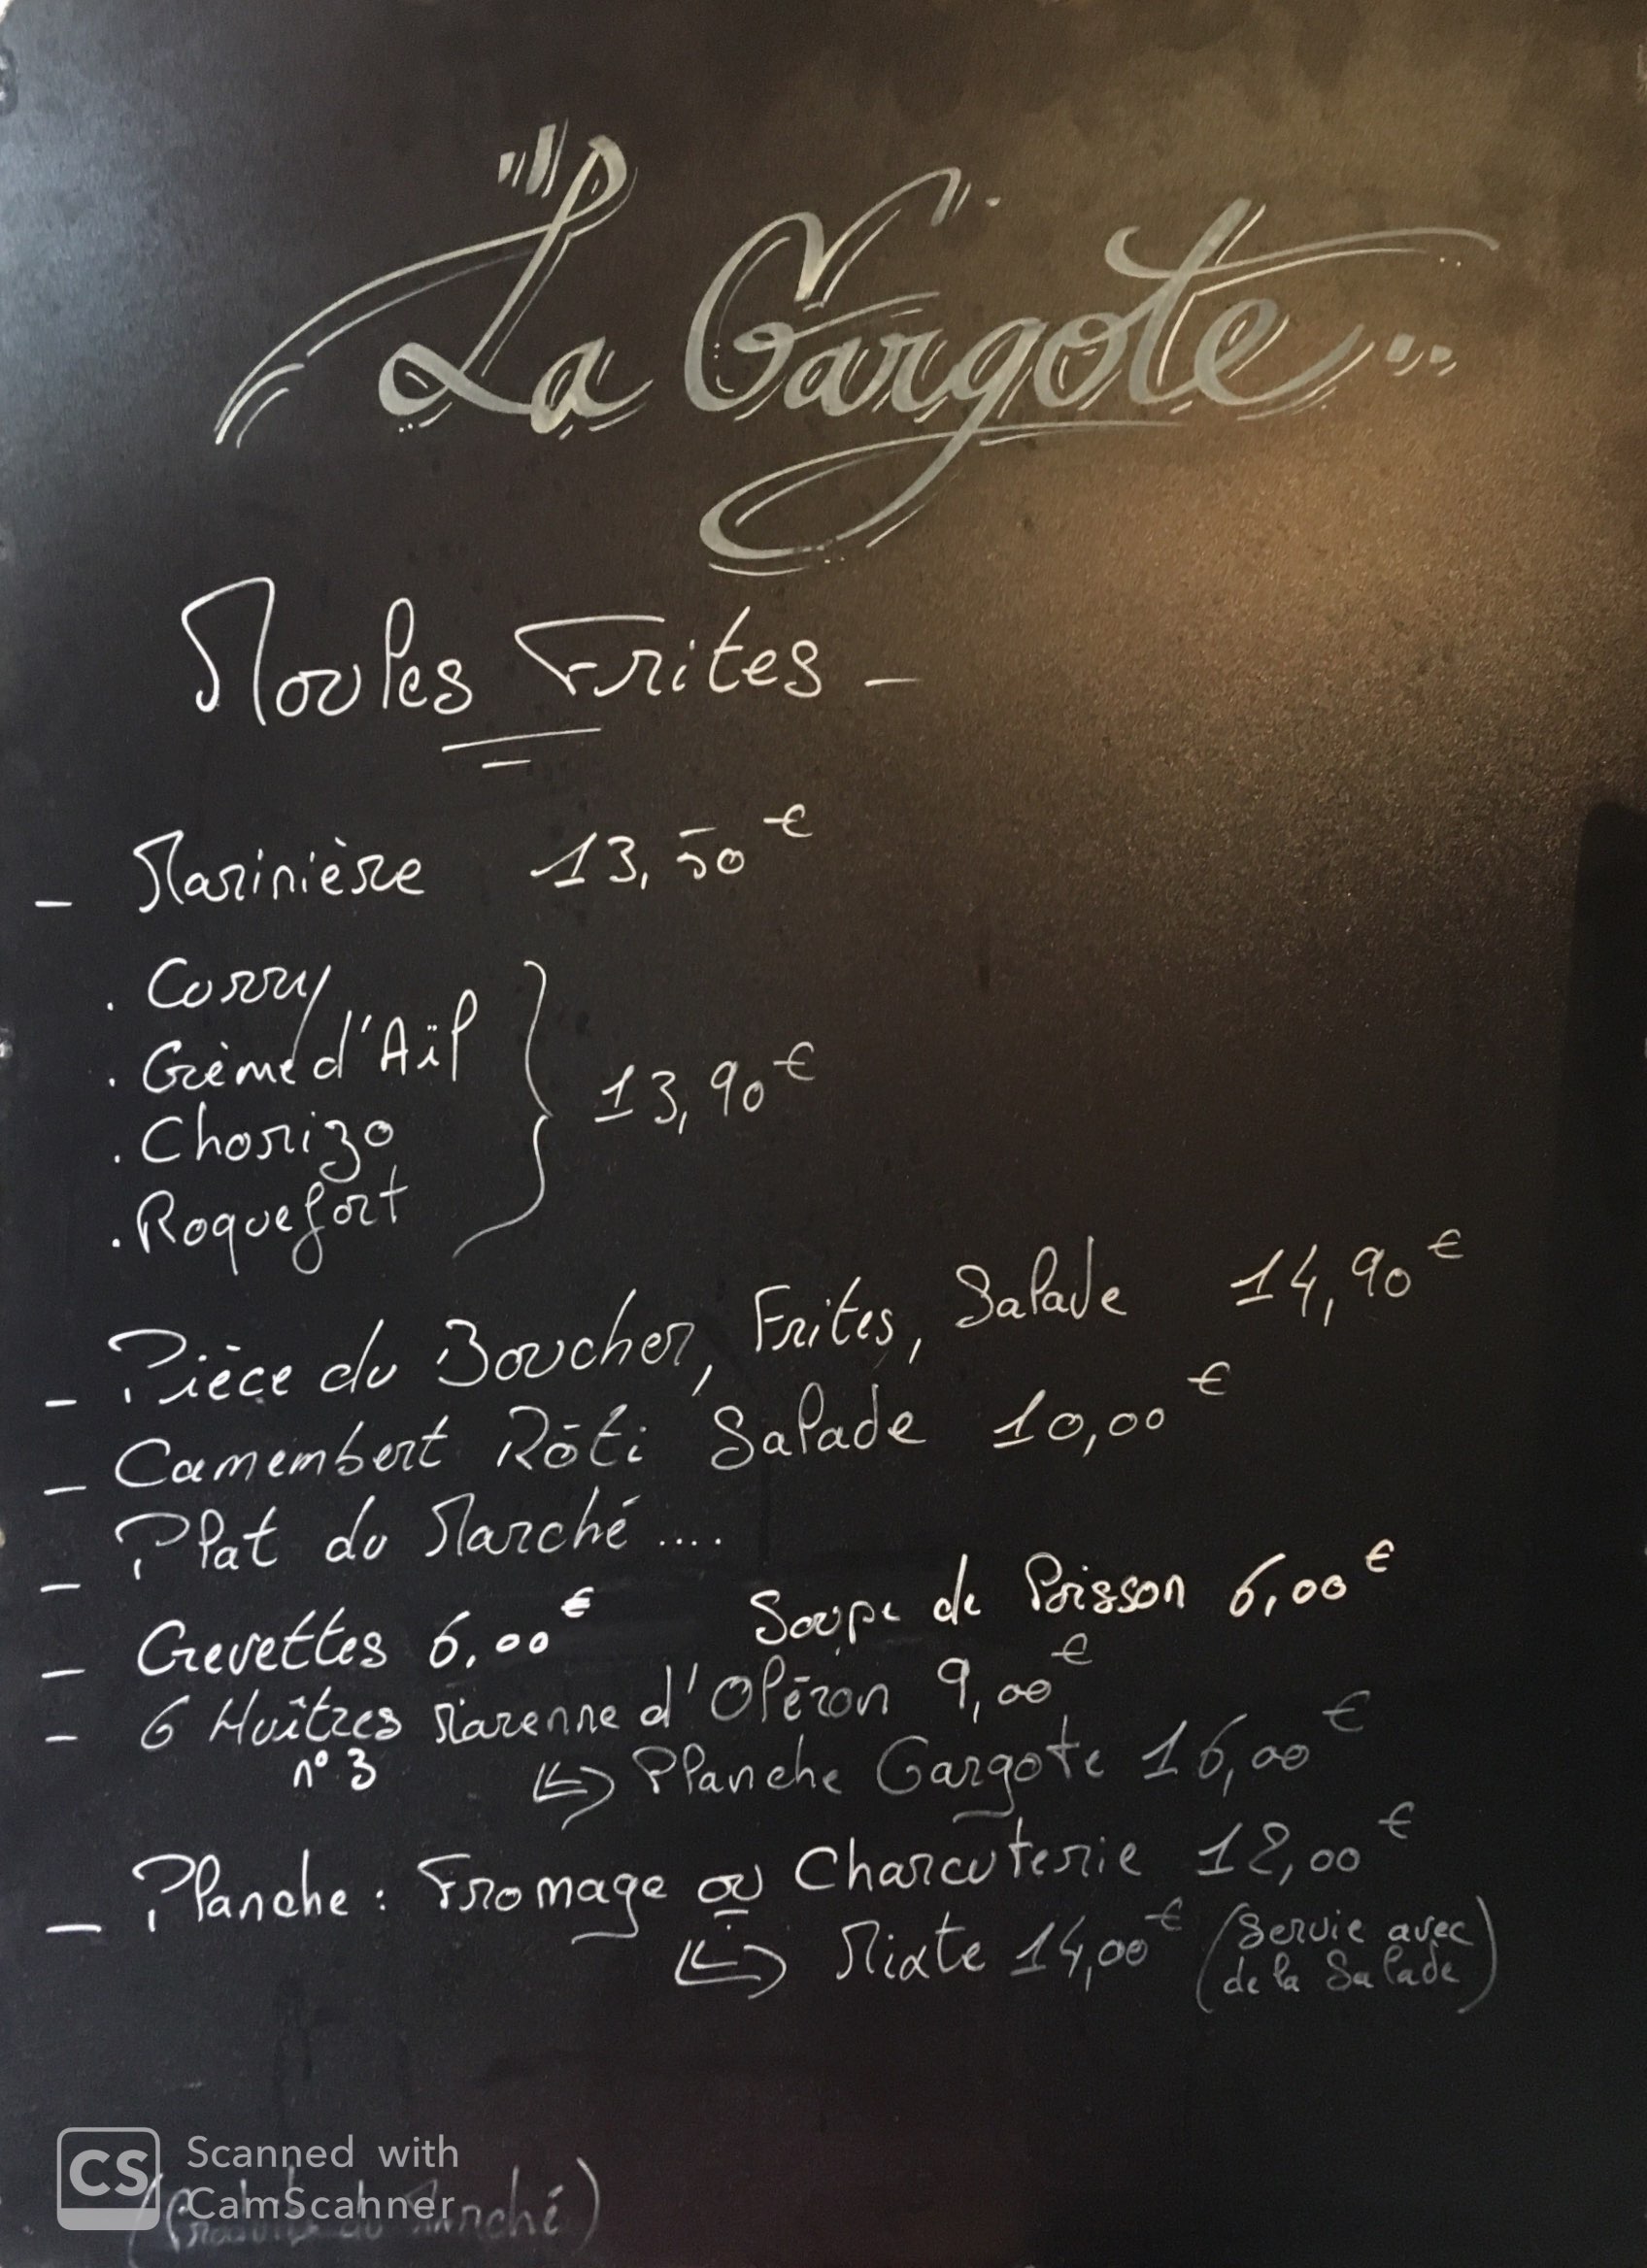 La Gargote...
Moules Frites -
- Marinière 13,50€
. Curry
. Crème d'Aïl
. Chorizo
. Roquefort
13,90€
- Pièce du Boucher, Frites, Salade 14,90€
- Camembert Rôti Salade 10,00€
- Plat du Marché ....
- Crevettes 6,00€ Soupe de Poisson 6,00€
- 6 Huîtres Marenne d'Oléron 9,00€
n°3
↳ Planche Gargote 16,00€
- Planche : Fromage ou Charcuterie 12,00€
↳ Mixte 14,00€ (Servie avec
de la Salade)
CS Scanned with
CamScanner
(Produits du Marché)